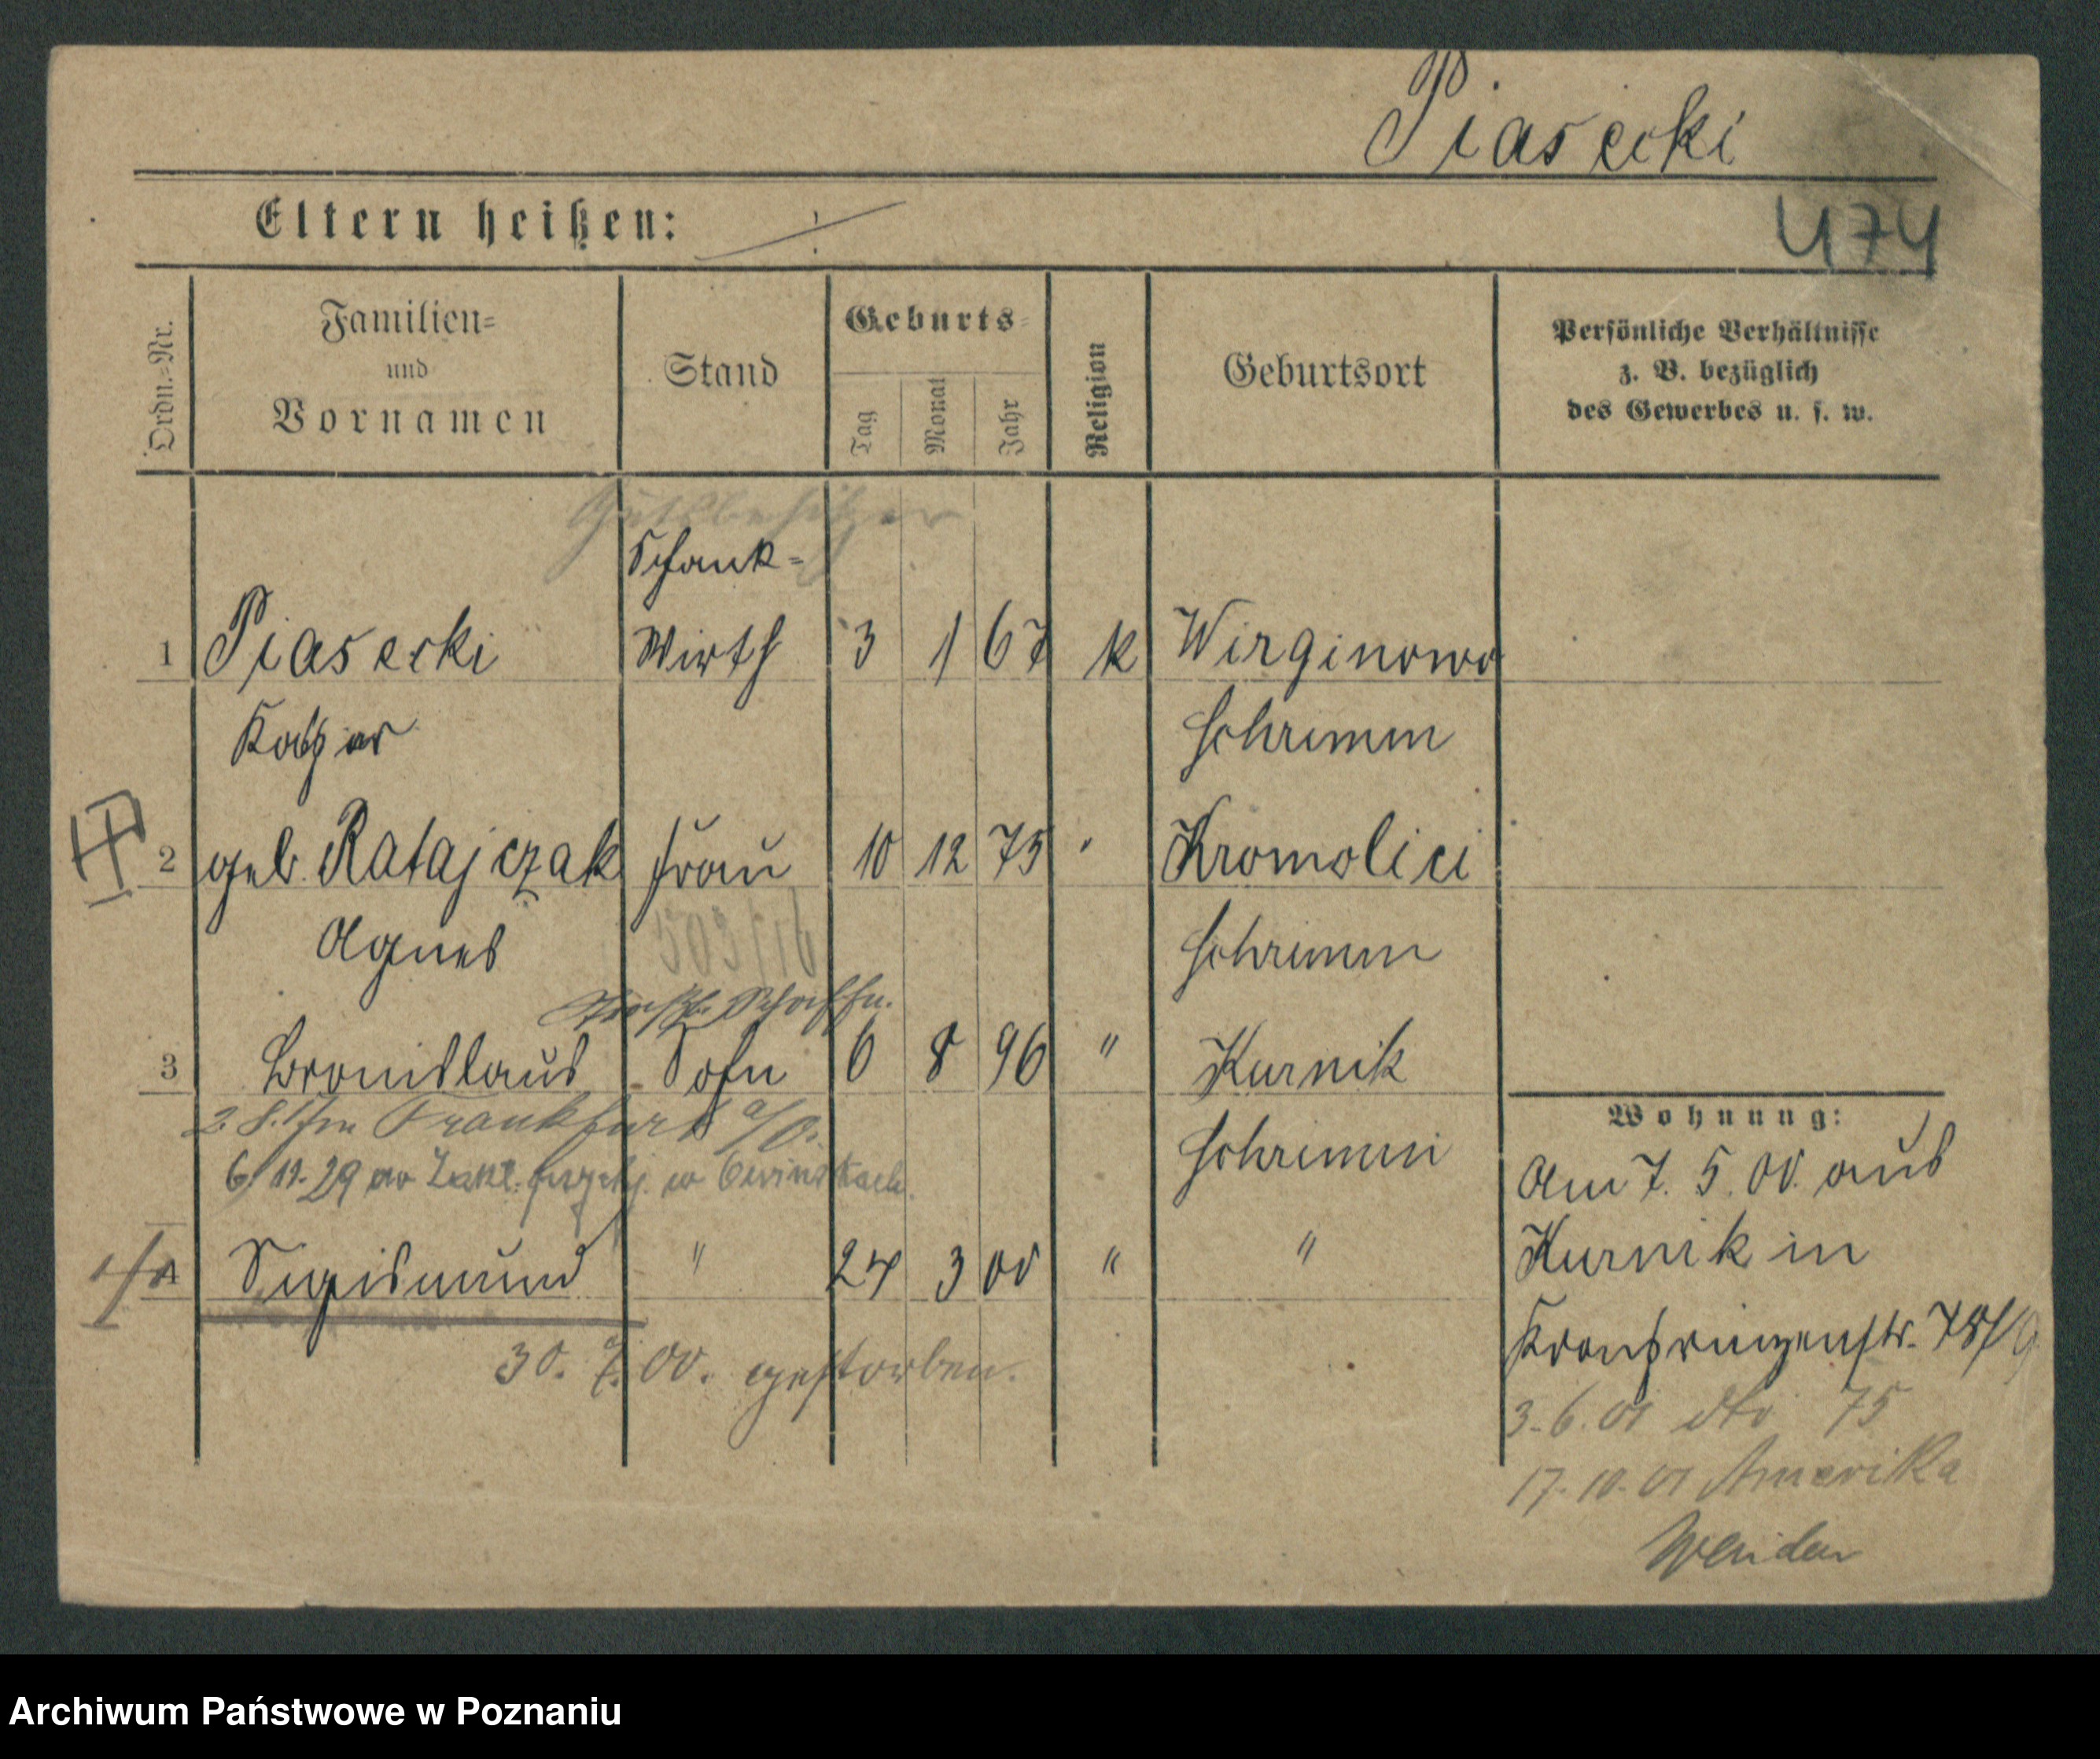 Piasecki
Eltern heißen: ÷
474
Ordn.-Nr.
Familien-
und
Vornamen
Stand
Geburts-
Tag
Monat
Jahr
Religion
Geburtsort
Persönliche Verhältnisse
z. B. bezüglich
des Gewerbes u. s. w.
Gutsbesitzer
Schank-
1 Piasecki Wirth 3 1 67 k Wirginowo
Schrimm
2 geb. Ratajczak Frau 10 12 75 " Kromolici
Agnes Schrimm
503/16
Schaffn.
3 Bronislaus Sohn 6 8 96 " Kurnik
Frankfurt a/O.
Schrimm
6/12.29
4 Sigismund " 24 3 00 " "
30. 7. 00. gestorben.
Wohnung:
Am 7. 5. 00. aus
Kurnik in
Kronprinzenstr.
3.6.01 dto 75
17.10.01 Amerika
Archiwum Państwowe w Poznaniu